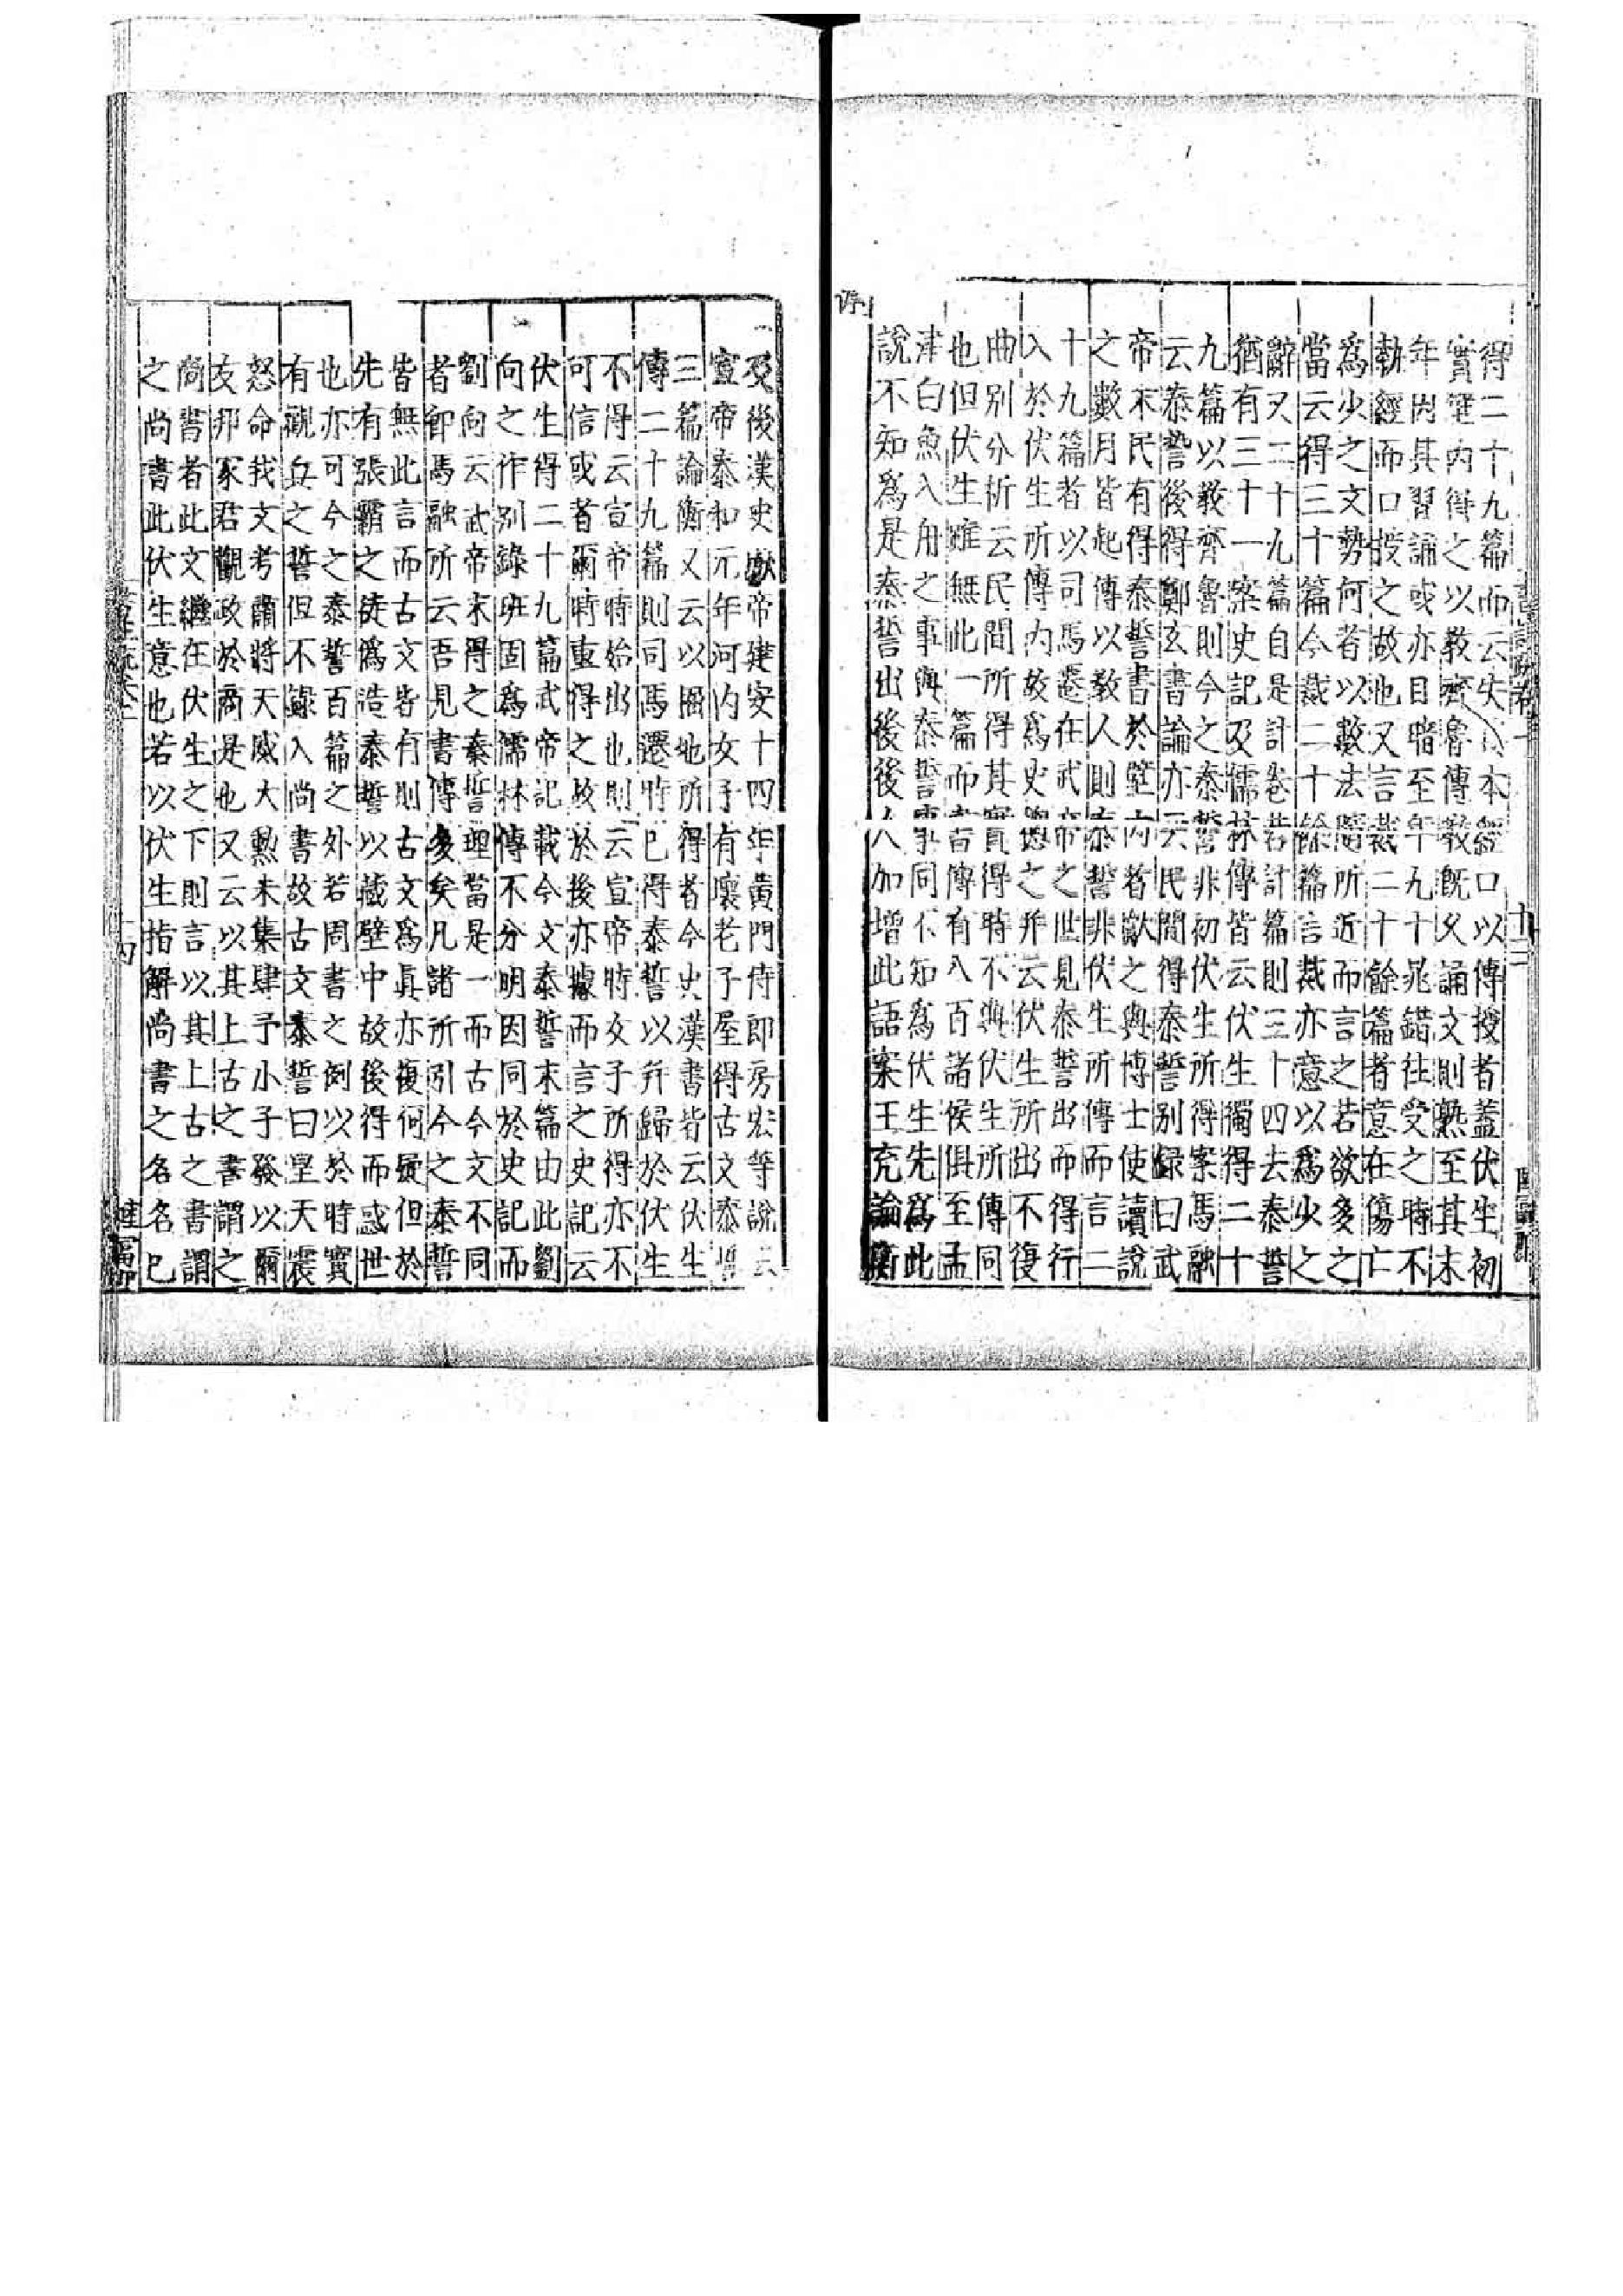 得二十九篇而云失本經口以傳授者蓋伏生初
實壁內得之以教齊魯傳教既久誦文則熟至其末
年因其習誦或亦目暗至年九十晁錯往受之時不
執經而口授之故也又言裁二十餘篇者意在傷亡
爲少之文勢何者以數法隨所近而言之若欲多之
當云得三十篇今裁二十餘篇言裁亦意以爲少之
辭又二十九篇自是計卷若計篇則三十四去泰誓
猶有三十一案史記及儒林傳皆云伏生獨得二十
九篇以教齊魯則今之泰誓非初伏生所得案馬融
云泰誓後得鄭玄書論亦云民間得泰誓别録曰武
帝末民有得泰誓書於壁內者獻之與博士使讀說
之數月皆起傳以教人則泰誓非伏生所傳而言二
十九篇者以司馬遷在武帝之世見泰誓出而得行
入於伏生所傳內故爲史總之并云伏生所出不復
曲别分析云民間所得其實得時不與伏生所傳同
也但伏生雖無此一篇而書傳有八百諸侯俱至孟
津白魚入舟之事與泰誓事同不知爲伏生先爲此
說不知爲是泰誓出後後人加增此語案王充論衡
序
及後漢史獻帝建安十四年黄門侍郎房宏等說云
宣帝泰和元年河內女子有壞老子屋得古文泰誓
三篇論衡又云以掘地所得者今史漢書皆云伏生
傳二十九篇則司馬遷時已得泰誓以并歸於伏生
不得云宣帝時始出也則云宣帝時女子所得亦不
可信或者爾時重得之故於後亦據而言之史記云
伏生得二十九篇武帝記載今文泰誓末篇由此劉
向之作别錄班固爲儒林傳不分明因同於史記而
劉向云武帝末得之泰誓理當是一而古今文不同
者即馬融所云吾見書傳多矣凡諸所引今之泰誓
皆無此言而古文皆有則古文爲真亦復何疑但於
先有張霸之徒僞造泰誓以藏壁中故後得而惑世
也亦可今之泰誓百篇之外若周書之例以於時實
有觀兵之誓但不錄入尚書故古文泰誓曰皇天震
怒命我文考肅將天威大勲未集肆予小子發以爾
友邦冢君觀政於商是也又云以其上古之書謂之
尚書者此文繼在伏生之下則言以其上古之書謂
之尚書此伏生意也若以伏生指解尚書之名名已